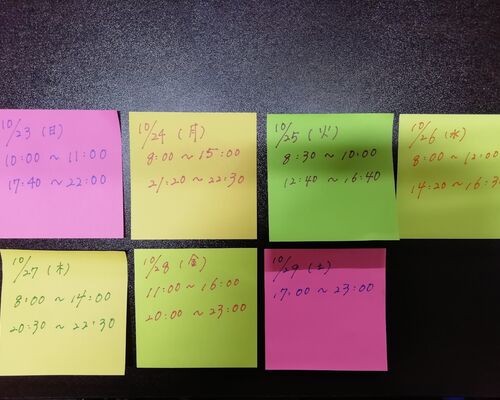 10/23 (日)
10:00 ~ 11:00
17:40 ~ 22:00
10/24 (月)
8:00 ~ 15:00
21:20 ~ 22:30
10/25 (火)
8:30 ~ 10:00
12:40 ~ 16:40
10/26 (水)
8:00 ~ 12:00
14:20 ~ 16:3
10/27 (木)
8:00 ~ 14:00
20:30 ~ 22:30
10/28 (金)
11:00 ~ 16:00
20:00 ~ 23:00
10/29 (土)
17:00 ~ 23:00